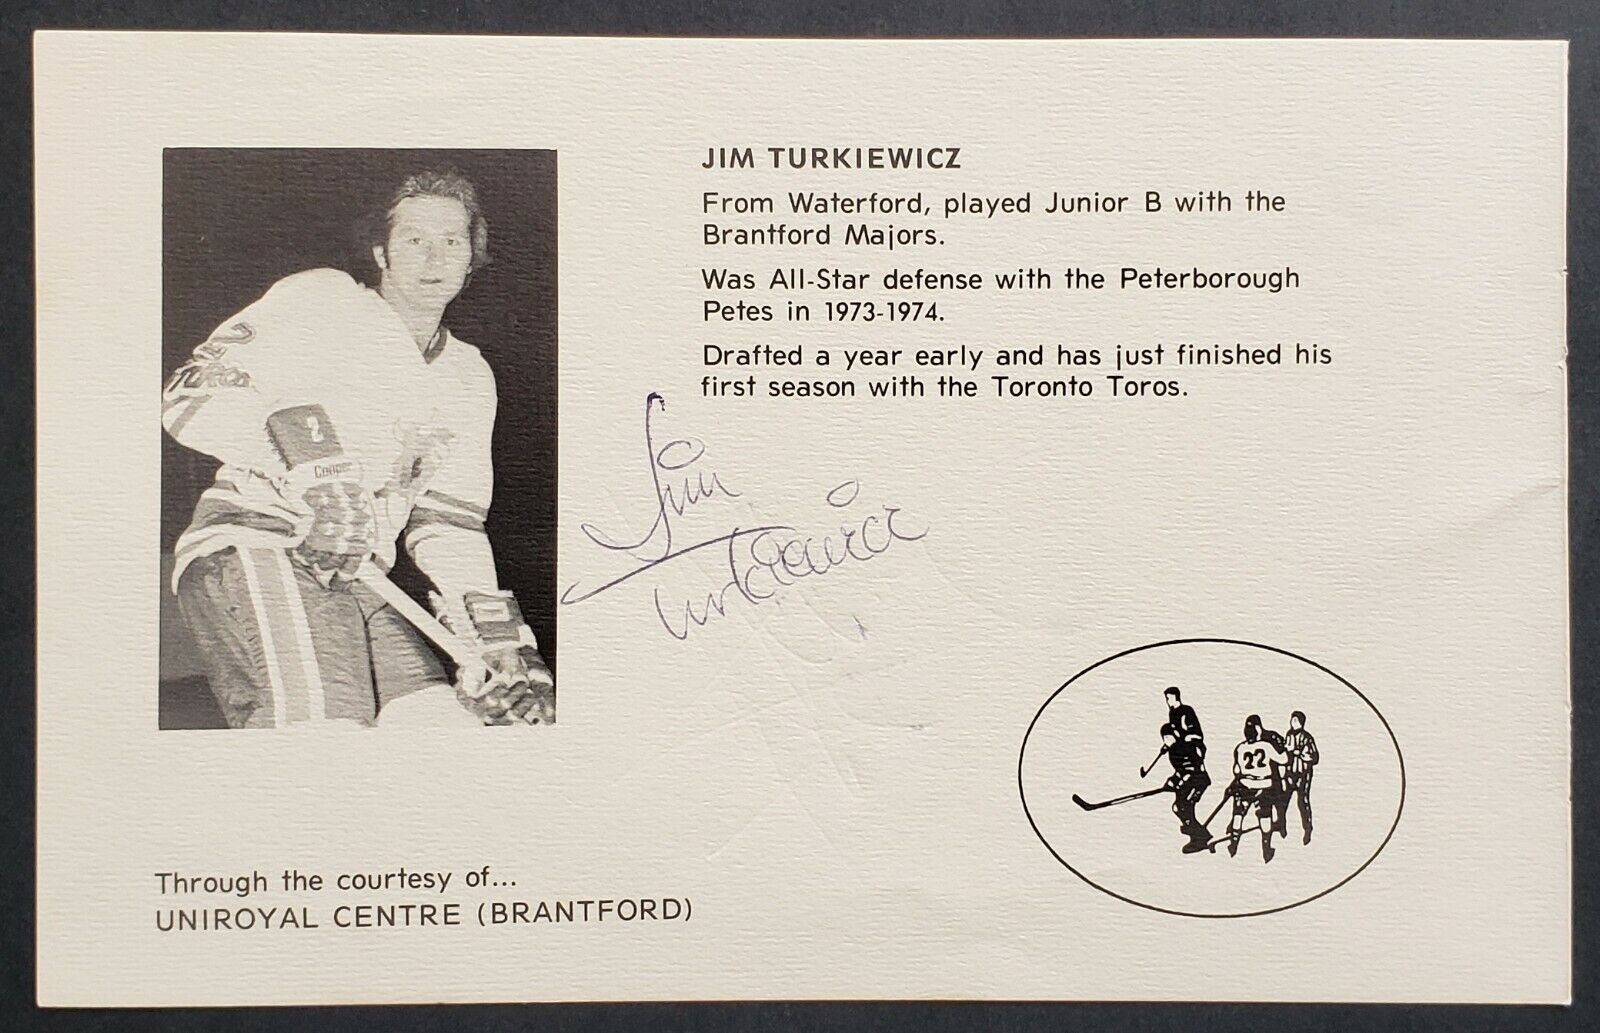 JIM TURKIEWICZ
From Waterford, played Junior B with the
Brantford Majors.
Was All-Star defense with the Peterborough
Petes in 1973-1974.
Drafted a year early and has just finished his
first season with the Toronto Toros.
2
Cooper
Jim
Turkiewicz
22
Through the courtesy of...
UNIROYAL CENTRE (BRANTFORD)